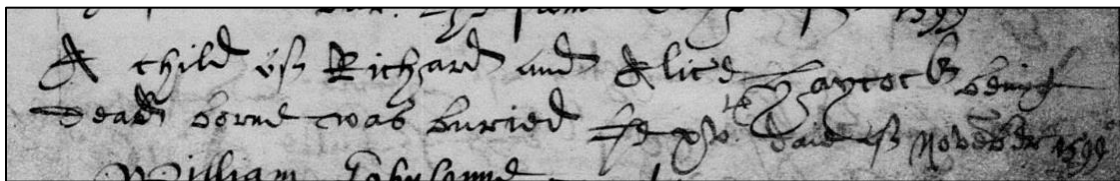 1599
A child of Richard and Alice Haycock being
dead borne was buried the xvth daie of November 1599
William Johnsonne